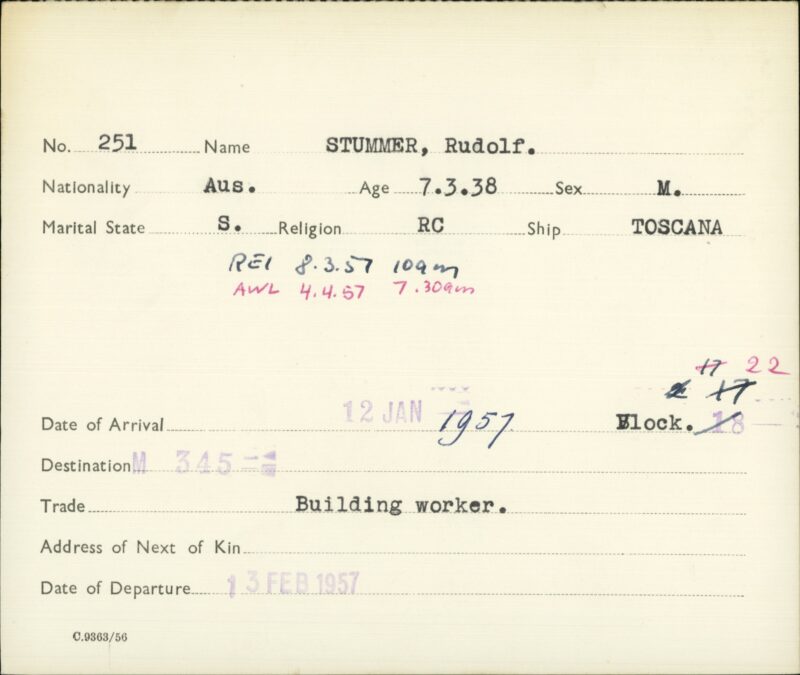 No. 251 Name STUMMER, Rudolf.
Nationality Aus. Age 7.3.38 Sex M.
Marital State S. Religion RC Ship TOSCANA
REI 8.3.57 10am
AWL 4.4.57 7.30am
17 22
17
Date of Arrival 12 JAN 1957 Block. 18
Destination M 345
Trade Building worker.
Address of Next of Kin
Date of Departure 13 FEB 1957
C.9363/56